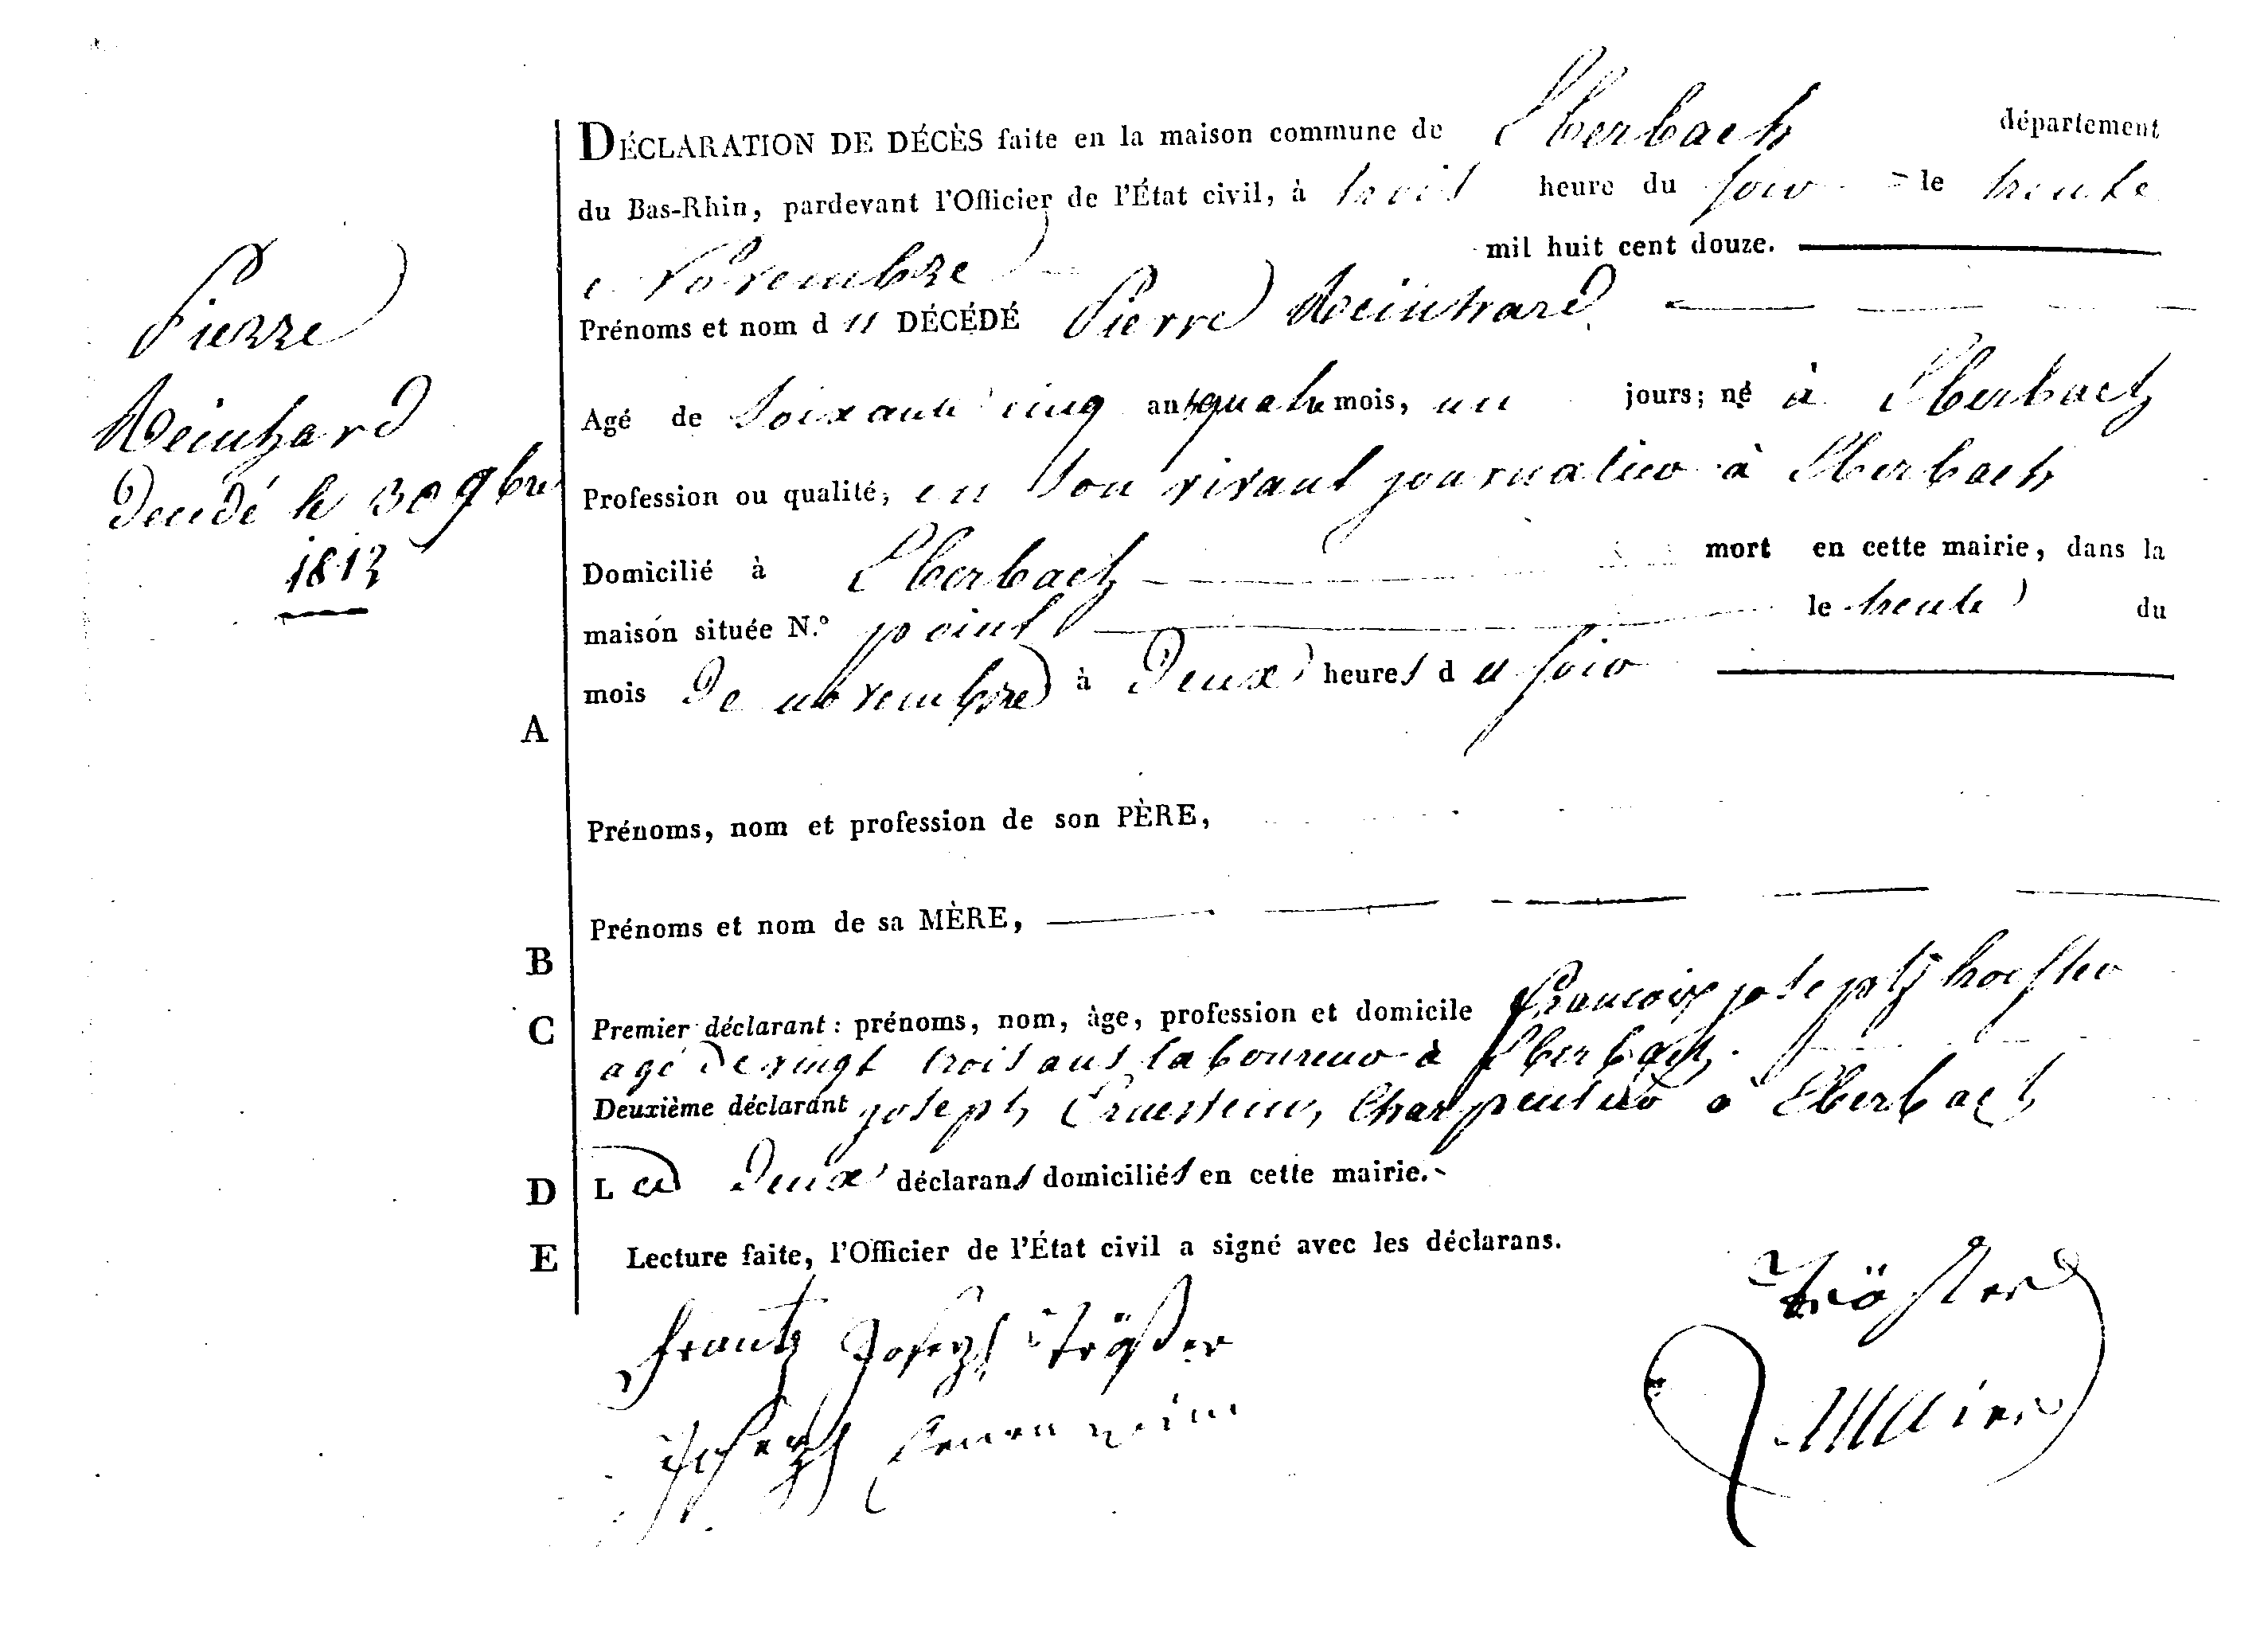 DÉCLARATION DE DÉCÈS faite en la maison commune de Eberbach département
du Bas-Rhin, pardevant l'Officier de l'État civil, à trois heure du soir le trente
Novembre mil huit cent douze.
Pierre
Prénoms et nom d u DÉCÉDÉ Pierre Reinhard
Reinhard
Agé de soixante cinq ans quatre mois, un jours; né à Eberbach
Decedé le 30 9bre
Profession ou qualité, en son vivant journalier à Eberbach
1812
Domicilié à Eberbach mort en cette mairie, dans la
maison située N.° point le trente du
mois de novembre à deux heures d u soir
A
Prénoms, nom et profession de son PÈRE,
Prénoms et nom de sa MÈRE,
B
C Premier déclarant : prénoms, nom, âge, profession et domicile francois joseph
agé de vingt trois ans laboureur à Eberbach.
Deuxième déclarant joseph charpentier à Eberbach
D Les deux déclarans domiciliés en cette mairie.
E Lecture faite, l'Officier de l'État civil a signé avec les déclarans.
Frantz Joseph
Joseph